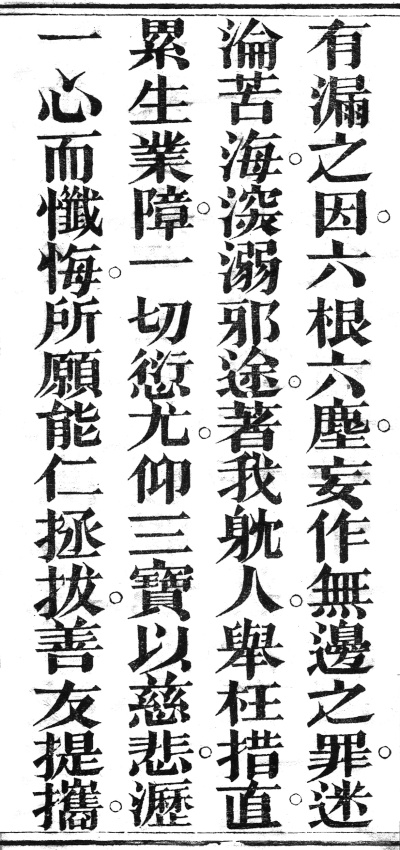 有漏之因。六根六塵。妄作無邊之罪。迷
淪苦海。深溺邪途。著我躭人。舉枉措直。
累生業障。一切愆尤。仰三寶以慈悲。瀝
一心而懺悔。所願能仁拯拔。善友提攜。